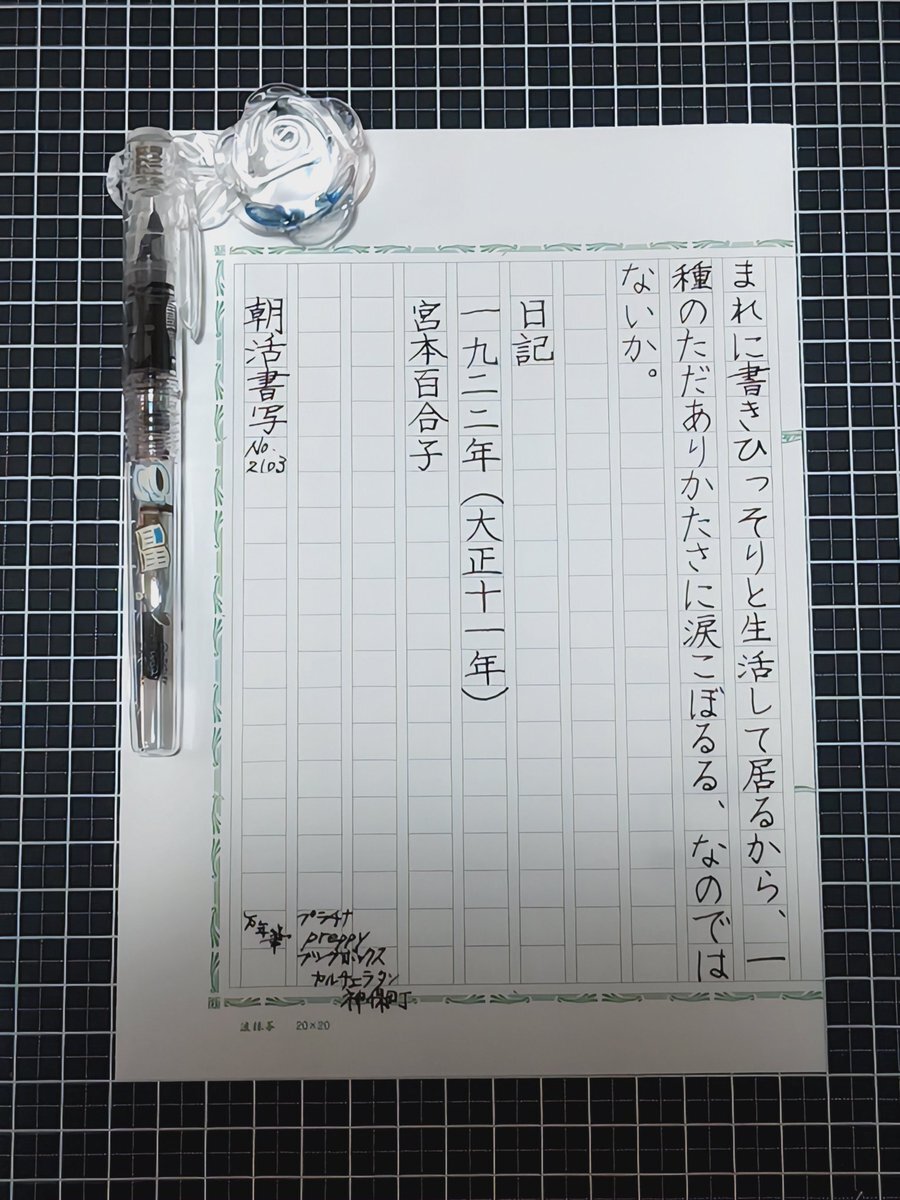 まれに書きひっそりと生活して居るから、一
種のただありかたさに涙こぼるる、なのでは
ないか。
日記
一九二二年(大正十一年)
宮本百合子
朝活書写
No.
2103
プラチナ
preppy
ブックボックス
カルチェラタン
神保町
万年筆
20×20